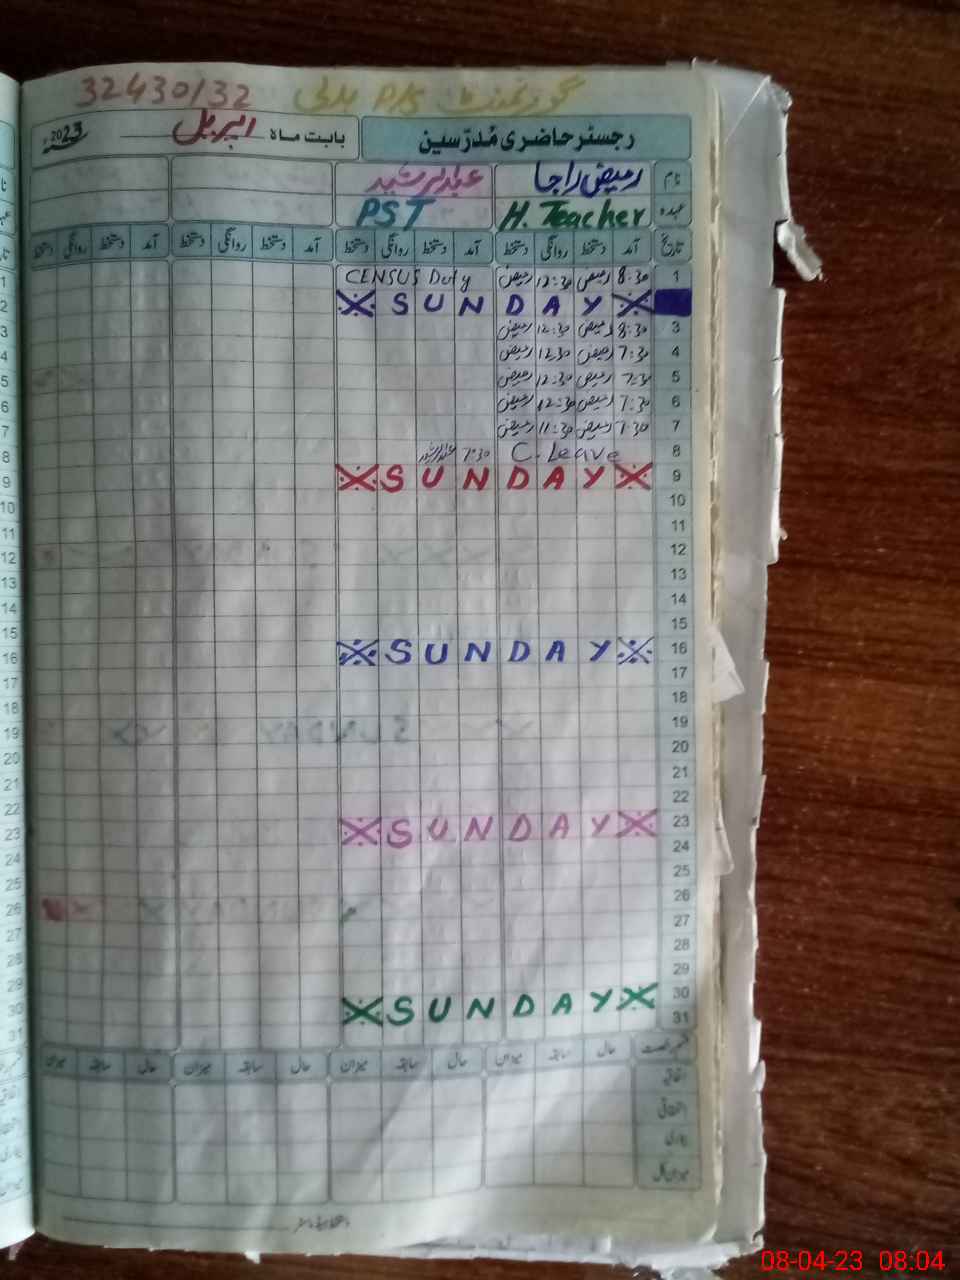 32430132 گورنمنٹ P/S بدلی
رجسٹر حاضری مُدرّسین بابت ماہ اپریل 2023ء
نام رمیض راجا عبدالرشید
عہدہ H. Teacher PST
تاریخ آمد دستخط روانگی دستخط آمد دستخط روانگی دستخط آمد دستخط روانگی دستخط آمد دستخط روانگی دستخط
1 8:30 رمیض 12:30 رمیض CENSUS Duty
SUNDAY
3 8:30 رمیض 12:30 رمیض
4 7:30 رمیض 12:30 رمیض
5 7:30 رمیض 12:30 رمیض
6 7:30 رمیض 12:30 رمیض
7 7:30 رمیض 11:30 رمیض
8 C. Leave 7:30 عبدالرشید
9 SUNDAY
10
11
12
13
14
15
16 SUNDAY
17
18
19
20
21
22
23 SUNDAY
24
25
26
27
28
29
30 SUNDAY
31
حال سابقہ میزان حال سابقہ میزان حال سابقہ میزان حال سابقہ میزان
اتفاقیہ
استحقاقی
بیماری
میزان کل
08-04-23 08:04